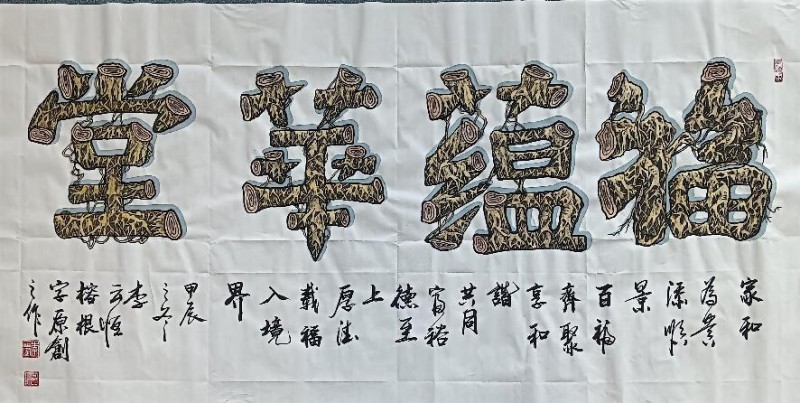 福蕴華堂
家和
為贵
添順
景
百福
齊聚
享和
諧
共同
富裕
德至
上
厚德
載福
入境
界
甲辰
之冬
李
云恒
榕根
字原創
之作